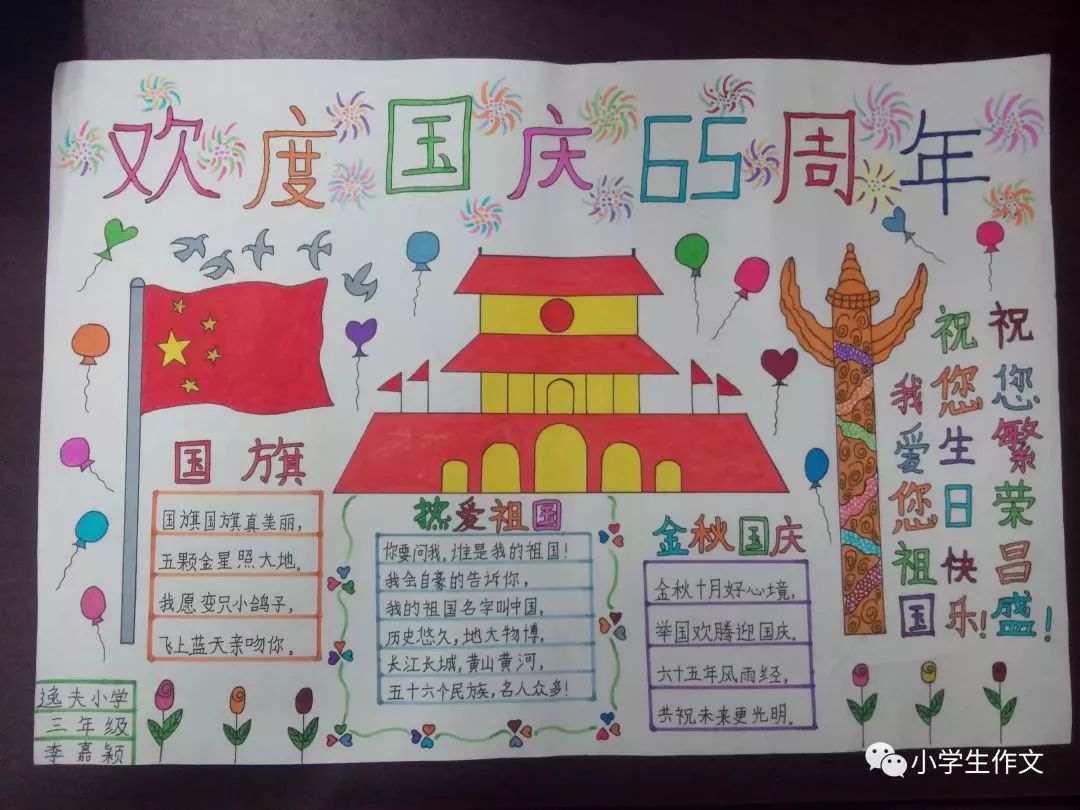 欢度国庆65周年
国旗
国旗国旗真美丽，
五颗金星照大地。
我愿变只小鸽子，
飞上蓝天亲吻你。
热爱祖国
你要问我，谁是我的祖国！
我会自豪的告诉你，
我的祖国名字叫中国，
历史悠久，地大物博，
长江长城，黄山黄河，
五十六个民族，名人众多！
金秋国庆
金秋十月好心境，
举国欢腾迎国庆。
六十五年风雨经，
共祝未来更光明。
我爱您祖国
祝您生日快乐！
祝您繁荣昌盛！
逸夫小学
三年级
李嘉颖
小学生作文